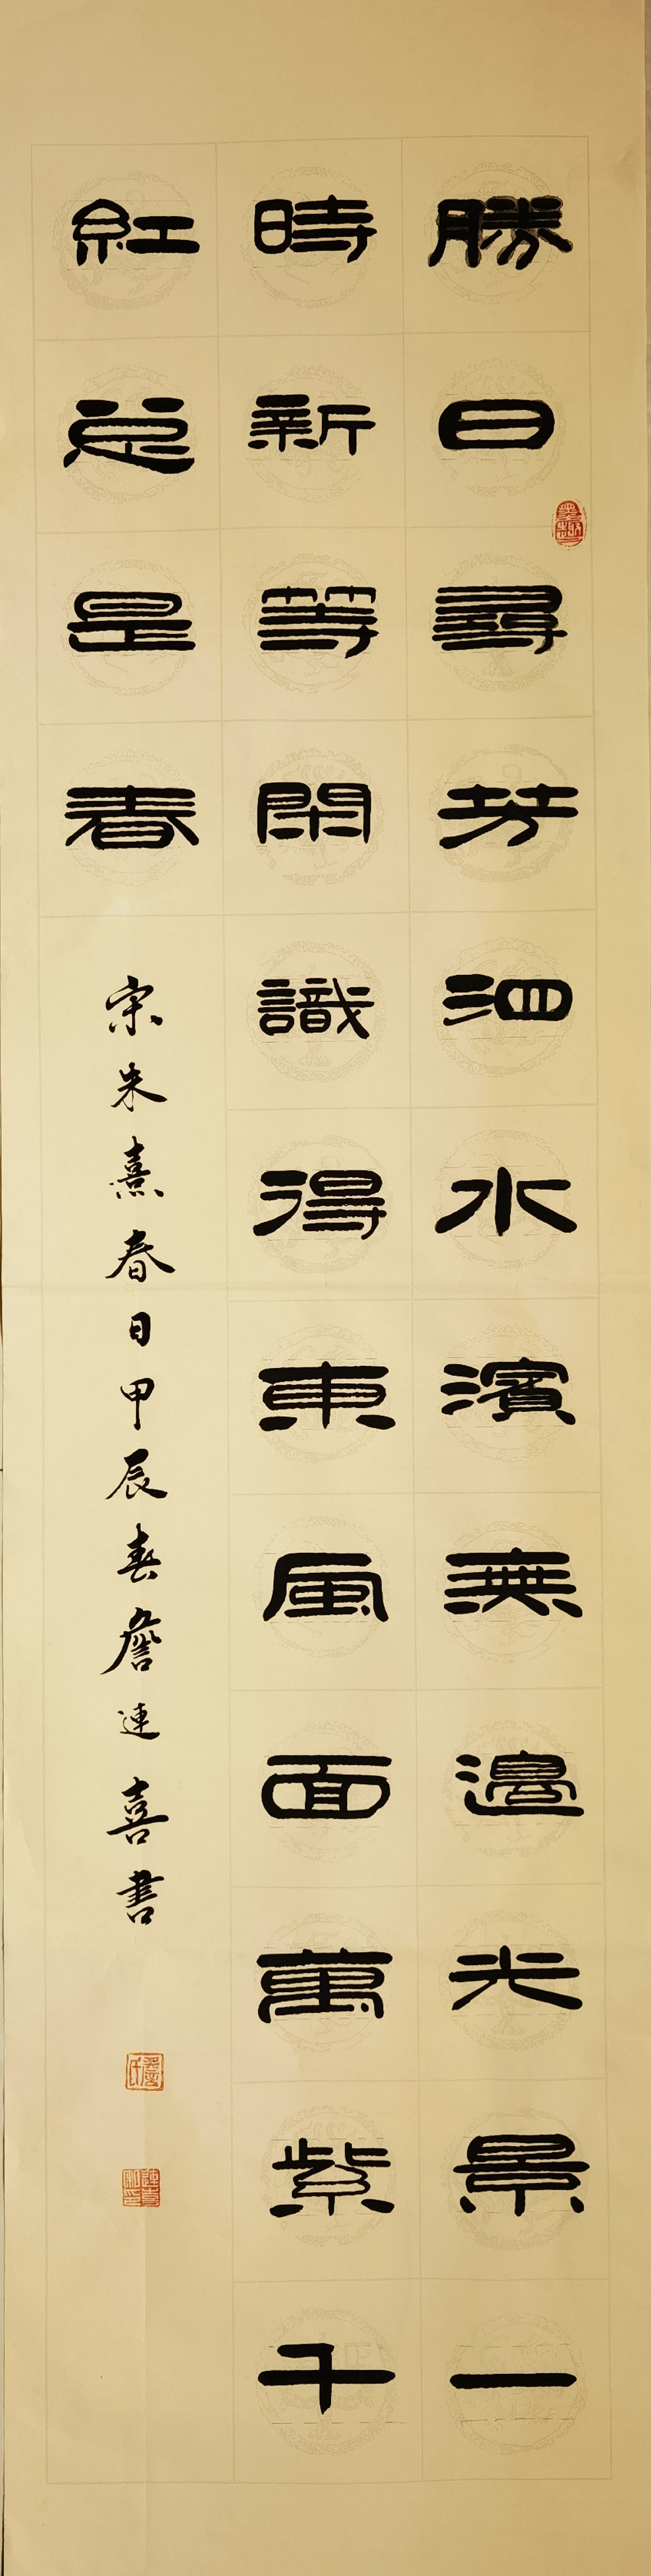 勝日尋芳泗水濱無邊光景一
時新等閑識得東風面萬紫千
紅總是春
宋朱熹春日甲辰春詹連喜書